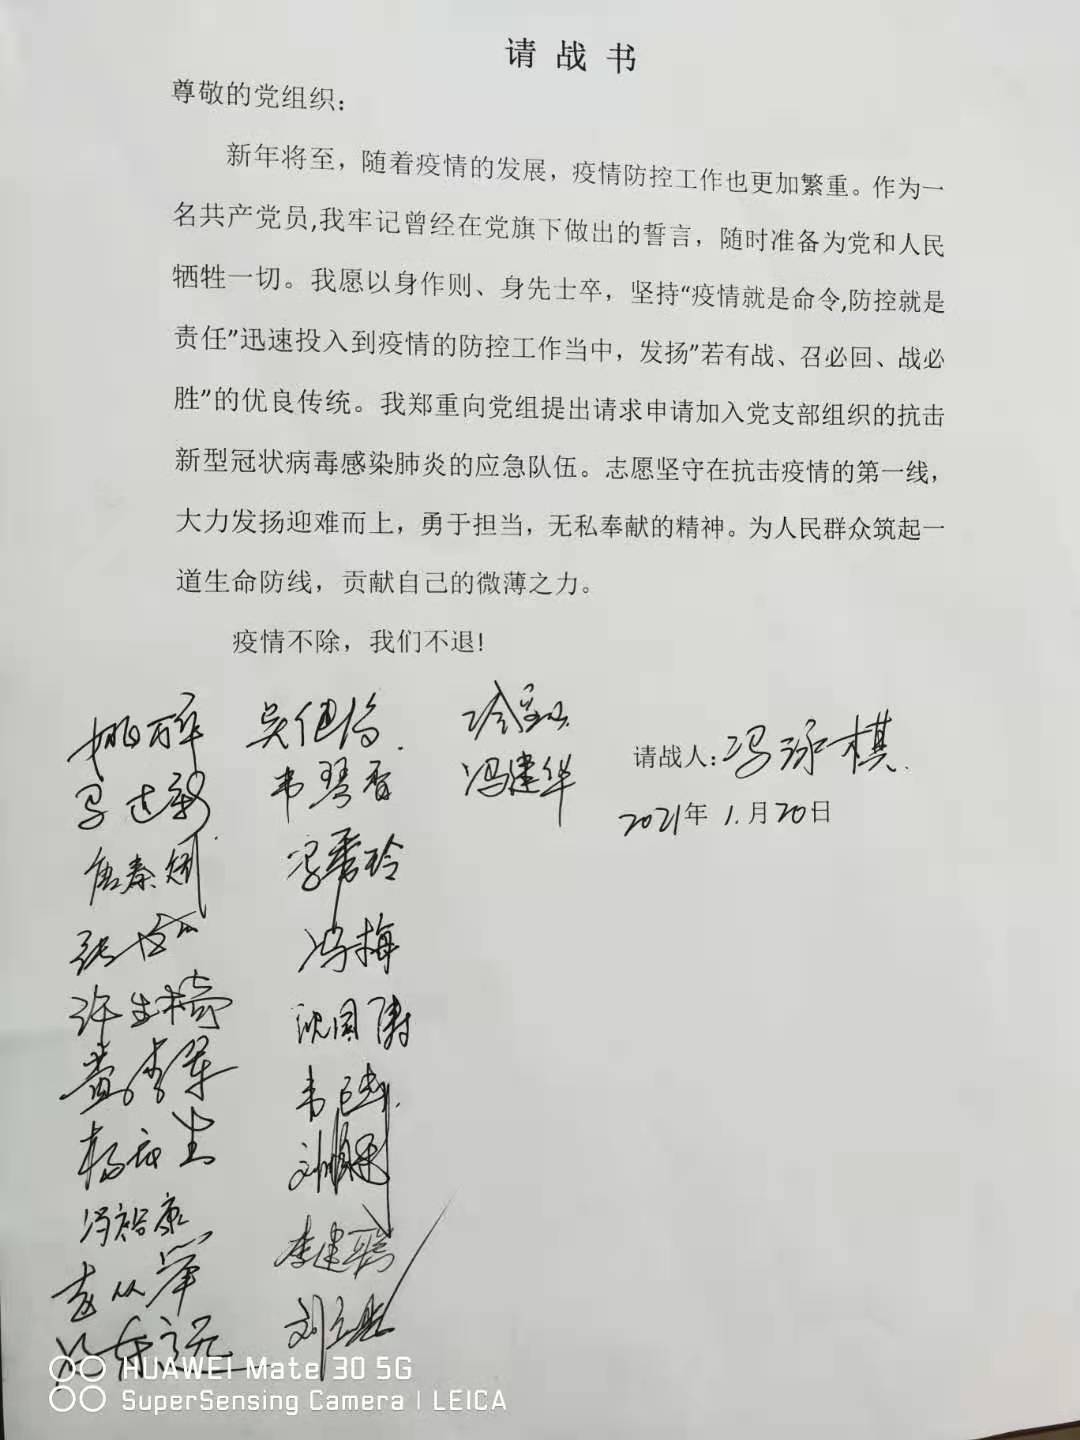 请战书
尊敬的党组织：
新年将至，随着疫情的发展，疫情防控工作也更加繁重。作为一
名共产党员,我牢记曾经在党旗下做出的誓言，随时准备为党和人民
牺牲一切。我愿以身作则、身先士卒，坚持“疫情就是命令,防控就是
责任”迅速投入到疫情的防控工作当中，发扬”若有战、召必回、战必
胜”的优良传统。我郑重向党组提出请求申请加入党支部组织的抗击
新型冠状病毒感染肺炎的应急队伍。志愿坚守在抗击疫情的第一线，
大力发扬迎难而上，勇于担当，无私奉献的精神。为人民群众筑起一
道生命防线，贡献自己的微薄之力。
疫情不除，我们不退!
请战人：冯泳棋
2021年1.月20日
韦琴香
冯建华
冯秀玲
冯梅
沈国涛
冯智康
HUAWEI Mate 30 5G
SuperSensing Camera | LEICA